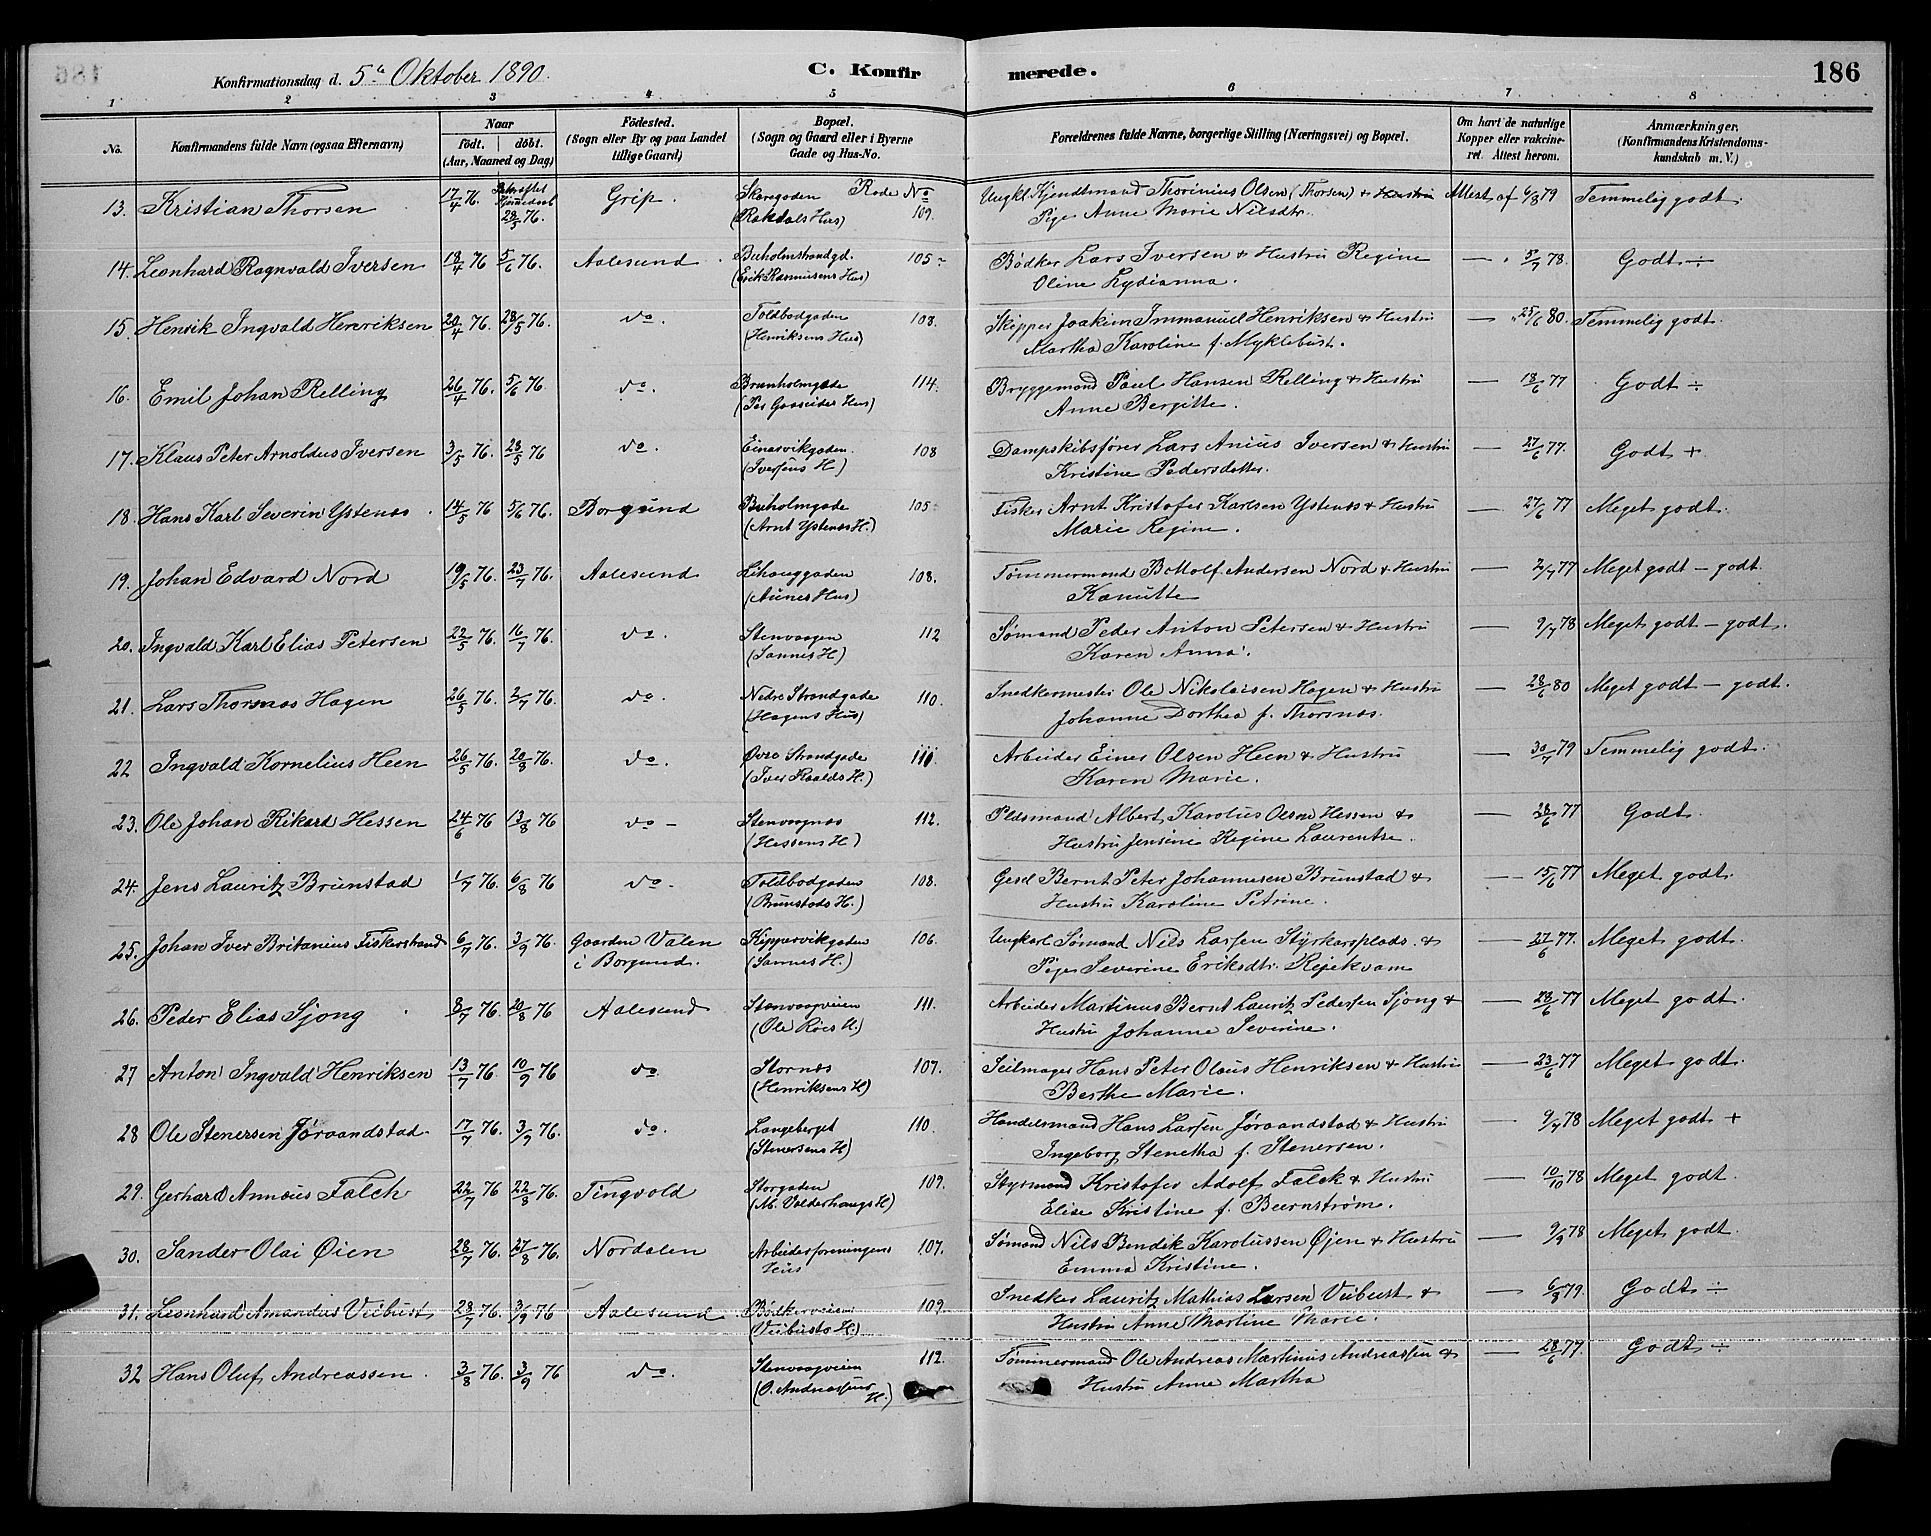 Konfirmationsdag d. 5te Oktober 1890.
C. Konfirmerede.
186
1 2 3 4 5 6 7 8
No. Konfirmandens fulde Navn (ogsaa Efternavn) Naar født. døbt. (Aar, Maaned og Dag) Fødested. (Sogn eller By og paa Landet tillige Gaard) Bopæl. (Sogn og Gaard eller i Byerne Gade og Hus-No. Forældrenes fulde Navne, borgerlige Stilling (Næringsvei) og Bopæl. Om havt de naturlige Kopper eller vakcineret. Attest herom. Anmærkninger. (Konfirmandens Kristendomskundskab m. V.)
13. Kristian Thorsen 17/4 76. 28/5 76. Grip. Rode No 109. Ungkl. Thorinius Olsen (Thorsen) & Attest af 6/8 79 Temmelig godt.
Pige Anne Marie Nilsdtr.
14. Leonhard Ragnvald Iversen 18/4 76 5/6 76. Aalesund Buholmstrandgd. 105 Bødker Lars Iversen & Hustru Regine — " 5/7 78. Godt ÷
(Erik Rasmusens Hus) Oline Lydianna.
15. Henrik Ingvald Henriksen 20/4 76. 28/5 76. do. Toldbodgaden 108. Skipper Joakim Immanuel Henriksen & Hustru — " 25/6 80. Temmelig godt.
(Henriksens Hus) Martha Karoline f. Myklebust.
16. Emil Johan Relling 26/4 76. 5/6 76 do. Brunholmgade 114. Bryggemand Paul Hansen Relling & Hustru — 18/6 77 Godt ÷
Anne Bergitte.
17. Klaus Peter Arnoldus Iversen 3/5 76. 28/5 76 do. Einarvikgaden. 108 Dampskibsfører Lars Anius Iversen & Hustru — 27/6 77. Godt +
(Iversens H.) Kristine Pedersdatter.
18. Hans Karl Severin Ystenæs. 14/5 76 5/6 76. Borgund Buholmgade 105 Fisker Arnt Kristofer Karlsen Ystenæs & Hustru — 27/6 77 Meget godt.
(Arnt Ystenæs H.) Marie Regine.
19. Johan Edvard Nord 19/5 76. 23/7 76. Aalesund Lihauggaden 108. Tømmermand Bottolf Andersen Nord & Hustru — 2/7 77 Meget godt – godt.
(Aunes Hus) Kanutte
20. Ingvald Karl Elias Petersen 22/5 76. 16/7 76. do. Stenvaagen 112 Sømand Peder Anton Petersen & Hustru — 9/7 78 Meget godt – godt.
(Sannes H.) Karen Anna.
21. Lars Thorsnæs Hagen 26/5 76. 2/7 76 do. Nedre Strandgade 110. Snedkermester Ole Nikolaisen Hagen & Hustru — 28/6 80 Meget godt – godt.
(Hagens Hus) Johanne Dorthea f. Thorsnæs.
22 Ingvald Kornelius Heen 26/5 76. 20/8 76. do. Øvre Strandgade 110. Arbeider Einer Olsen Heen & Hustru — 30/7 79 Temmelig godt.
(Iver Roalds H.) Karen Marie.
23. Ole Johan Rikard Hessen 24/6 76 13/8 76 do – Stenvaagnæs 112. Albert Karolius Olsen Hessen & — 28/6 77 Godt.
(Hessens H.) Hustru Jensine Regine Laurentse.
24. Jens Lauritz Brunstad 1/7 76. 6/8 76 do. Toldbodgaden 108. Gesel Bernt Peter Johannesen Brunstad & — 15/6 77 Meget godt.
(Brunstads H.) Hustru Karoline Petrine.
25. Johan Iver Britanius Fiskerstrand 6/7 76. 3/9 76. Gaarden Valen Kippervikgaden 106. Ungkarl Sømand Nils Larsen Styrkarsplads. & — 27/6 77. Meget godt.
i Borgund. (Sannes H.) Pige Severine Eriksdtr.
26. Peder Elias Sjong 8/7 76. 20/8 76 Aalesund Stenvaagveien 111. Arbeider Martinus Bernt Lauritz Pedersen Sjong & — 28/6 77 Meget godt.
Hustru Johanne Severine.
27 Anton Ingvald Henriksen 13/7 76. 10/9 76 do Stornæs 107. Seilmager Hans Peter Olaus Henriksen & Hustru — 23/6 77 Meget godt.
(Henriksens H) Berthe Marie.
28 Ole Stenersen Jøraandstad 17/7 76. 3/9 76. do. Langeberget 110. Handelsmand Hans Larsen Jøraandstad & Hustru — 9/7 78 Meget godt +
(Stenersens H) Ingeborg Stenetha f. Stenersen.
29. Gerhard Annæus Falck 22/7 76 22/8 76. Tingvold Storgaden 109. Styrmand Kristofer Adolf Falck & Hustru — 10/10 78 Meget godt.
(M. Valderhaugs H) Elise Kristine f. Beernstrøm.
30. Sander Olai Øien 28/7 76. 27/8 76. Nordalen Arbeiderforeningens 107. Sømand Nils Bendik Karolussen Øjen & Hustru — 9/9 78 Meget godt.
Hus Emma Kristine.
31. Leonhard Amandus Viebust 28/7 76. 3/9 76 Aalesund Bødkerveien 109. Snedker Lauritz Mathias Larsen Viebust & — 6/8 79. Godt ÷
(Viebusts H.) Hustru Anne Martine Marie.
32 Hans Oluf Andreassen. 3/8 76. 3/9 76 do. Stenvaagveien 112. Tømmermand Ole Andreas Martinus Andreassen & — 28/6 77. Godt ÷
(O. Andreassens H.) Hustru Anne Martha